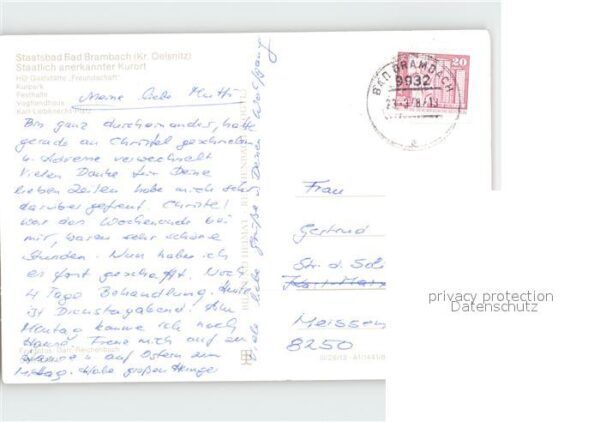 Staatsbad Bad Brambach (Kr. Oelsnitz)
Staatlich anerkannter Kurort
HO-Gaststätte „Freundschaft"
Kurpark
Festhalle
Vogtlandhaus
Karl-Liebknecht-Platz
Meine liebe Mutti
Bin ganz durcheinander, hatte
gerade an Christel geschrieben
u. Adresse verwechselt
Vielen Dank für Deine
lieben Zeilen habe mich sehr
darüber gefreut. Christel
war das Wochenende bei
mir, waren sehr schöne
Stunden. Nun habe ich
es fast geschafft. Noch
4 Tage Behandlung. Heute
ist Dienstagabend. Am
Montag komme ich nach
Hause. Freue mich auf zu
Hause u. auf Ostern zum
Mittag. Habe großen Hunger
Viele liebe Grüße v. Deinem Wolfgang
BILD UND HEIMAT REICHENBACH
BAD BRAMBACH
9932
20
Frau
Gertrud
Str. d. Sol
Karl-Marx
Meissen
8250
privacy protection
Datenschutz